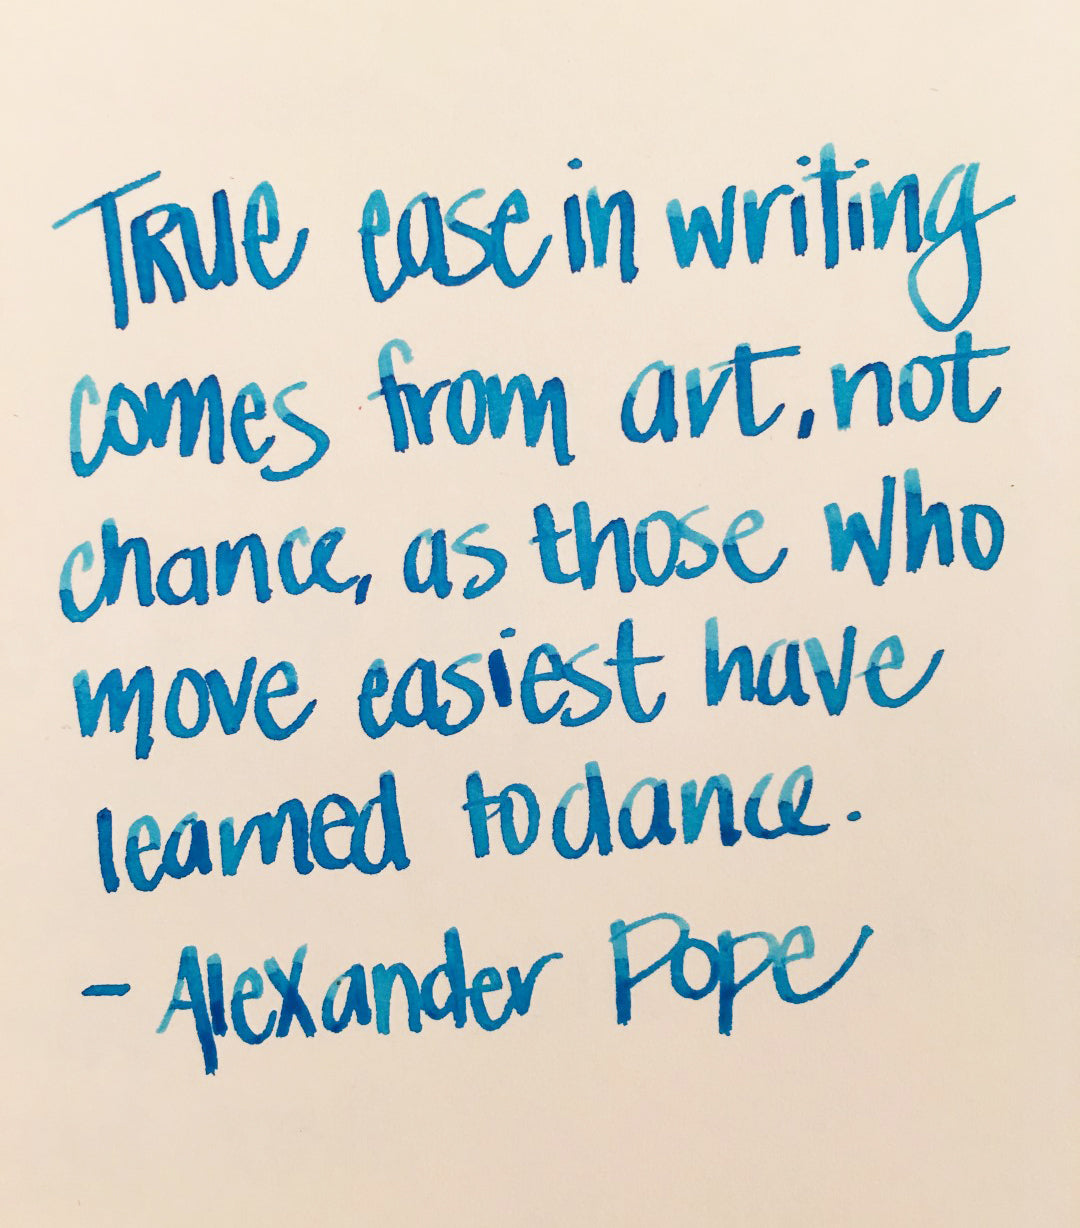 True ease in writing
comes from art, not
chance, as those who
move easiest have
learned to dance.
- Alexander Pope